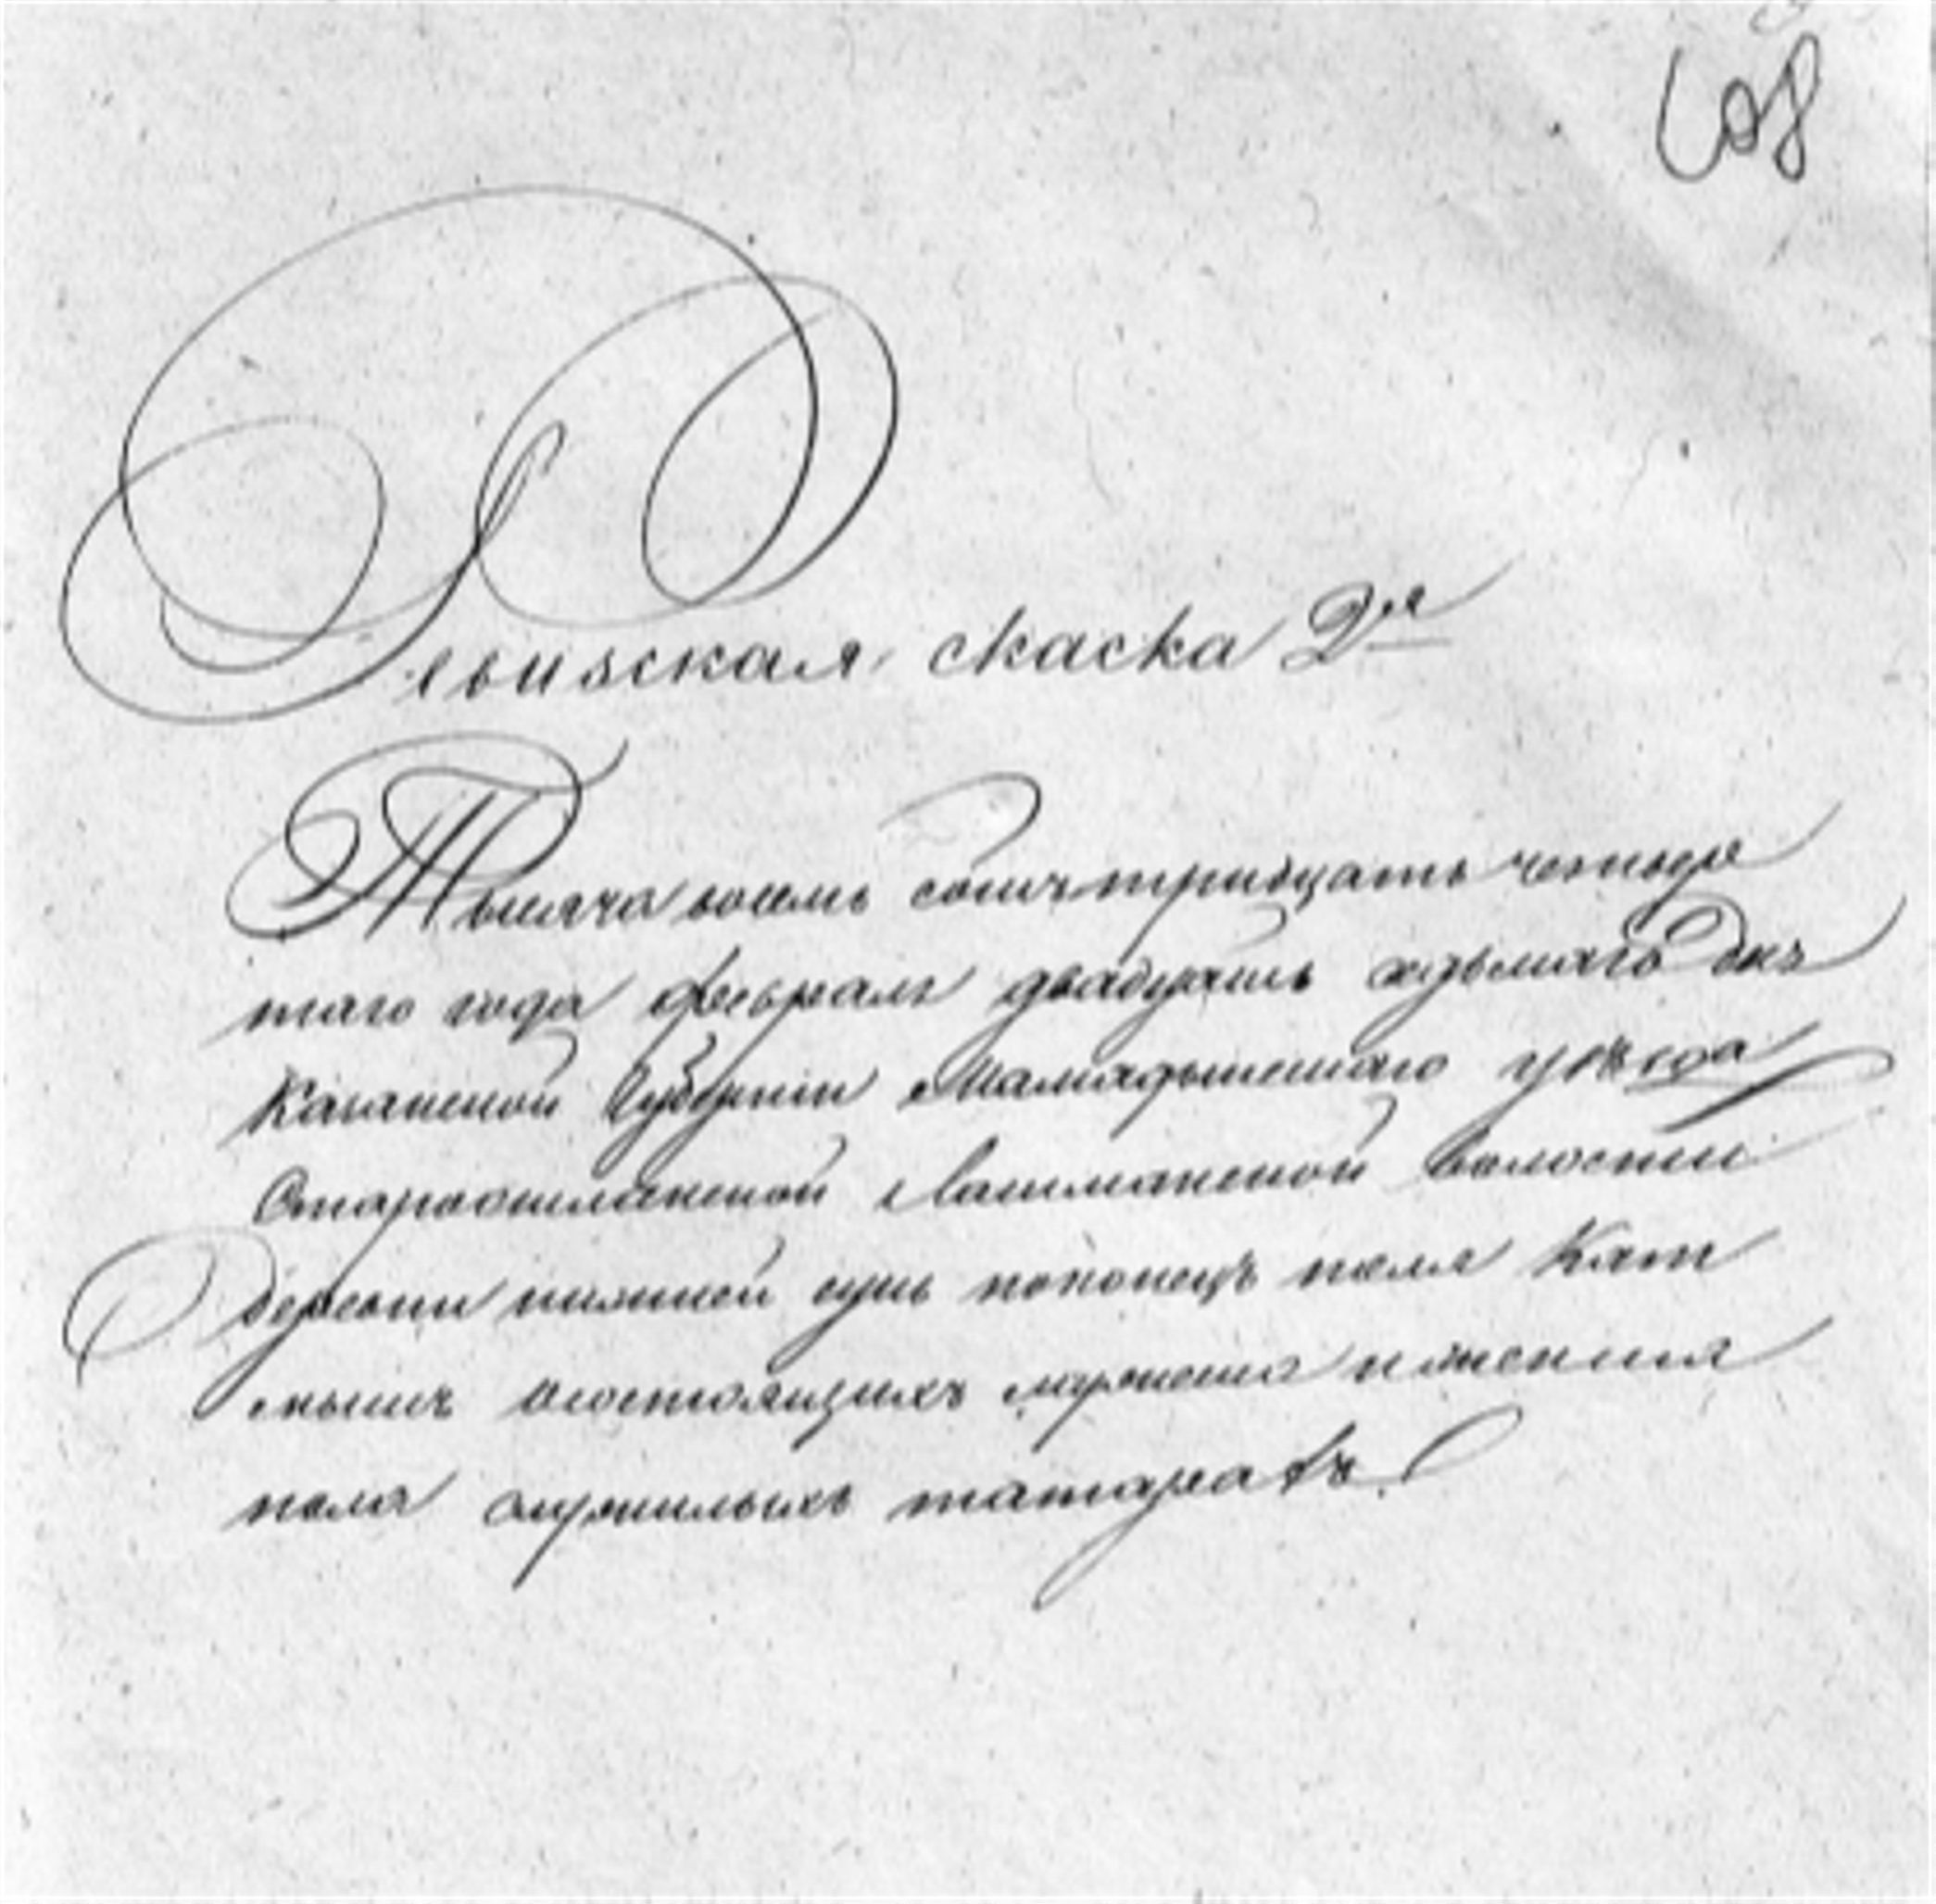 108
Ревизская скаска 2я
Тысяча восемь сотъ тридцать четвер
таго года февраля двадцать седьмаго дня
Казанской Губернии Мамадышскаго уезда
Староошланской Лашманской Волости
Деревни нижней сунь поконецъ поля
состоящихъ мужеска и женска
пола служилыхъ татаръ